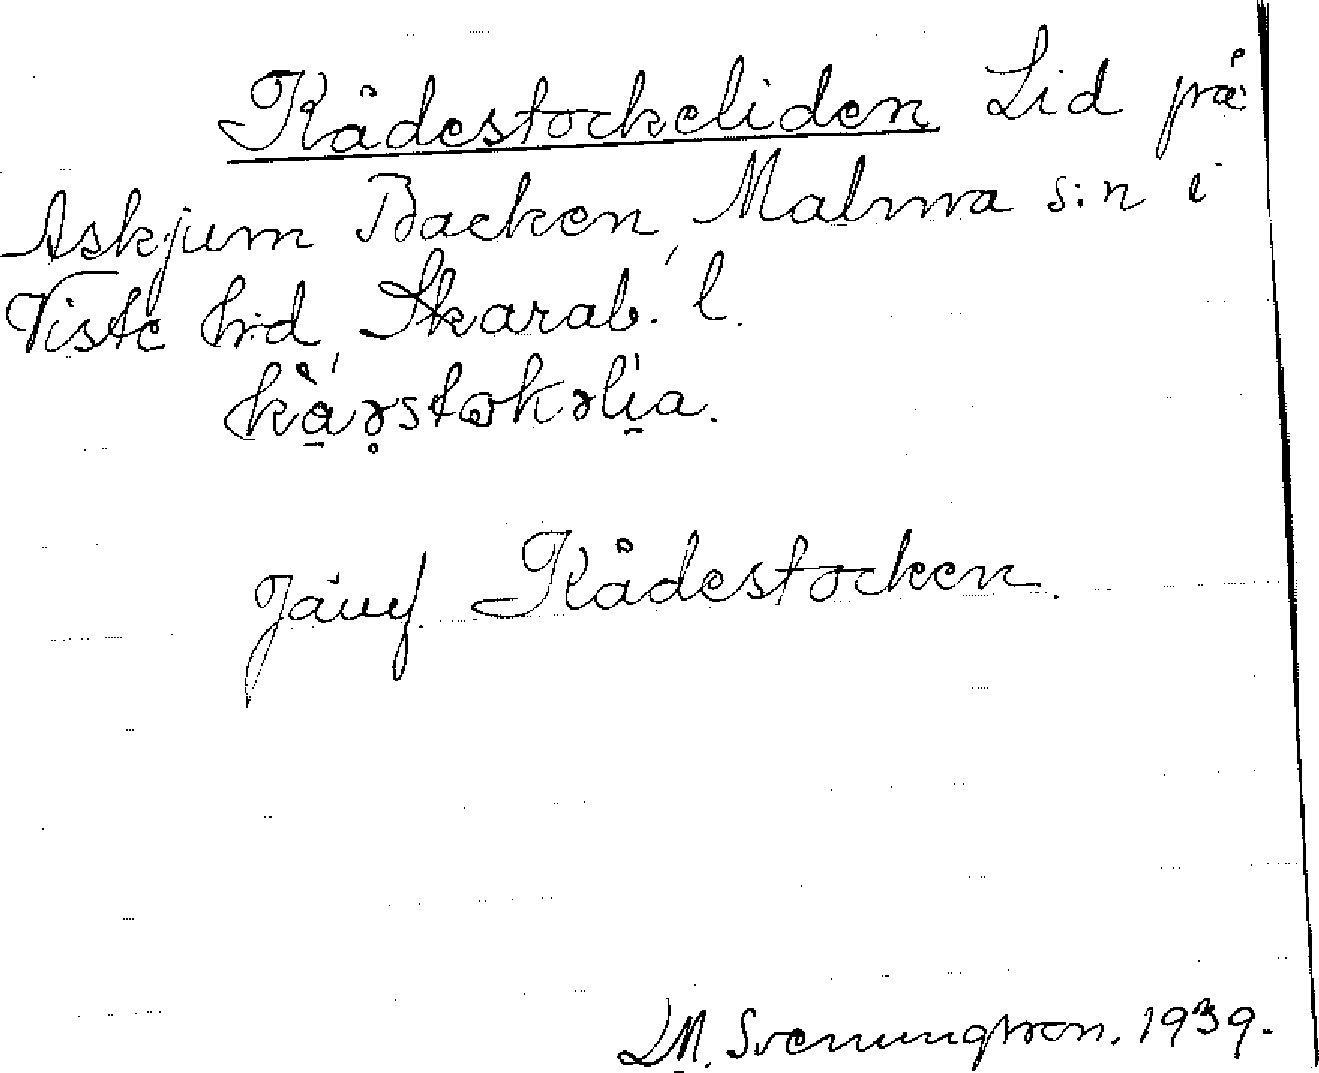 Kådestockeliden Lid på
Askjum Backen, Malma s:n i
Viste h:d, Skarab. l.
kàəstokəlia.
Jämf. Kådestocken.
D.M. Svenungsson. 1939.